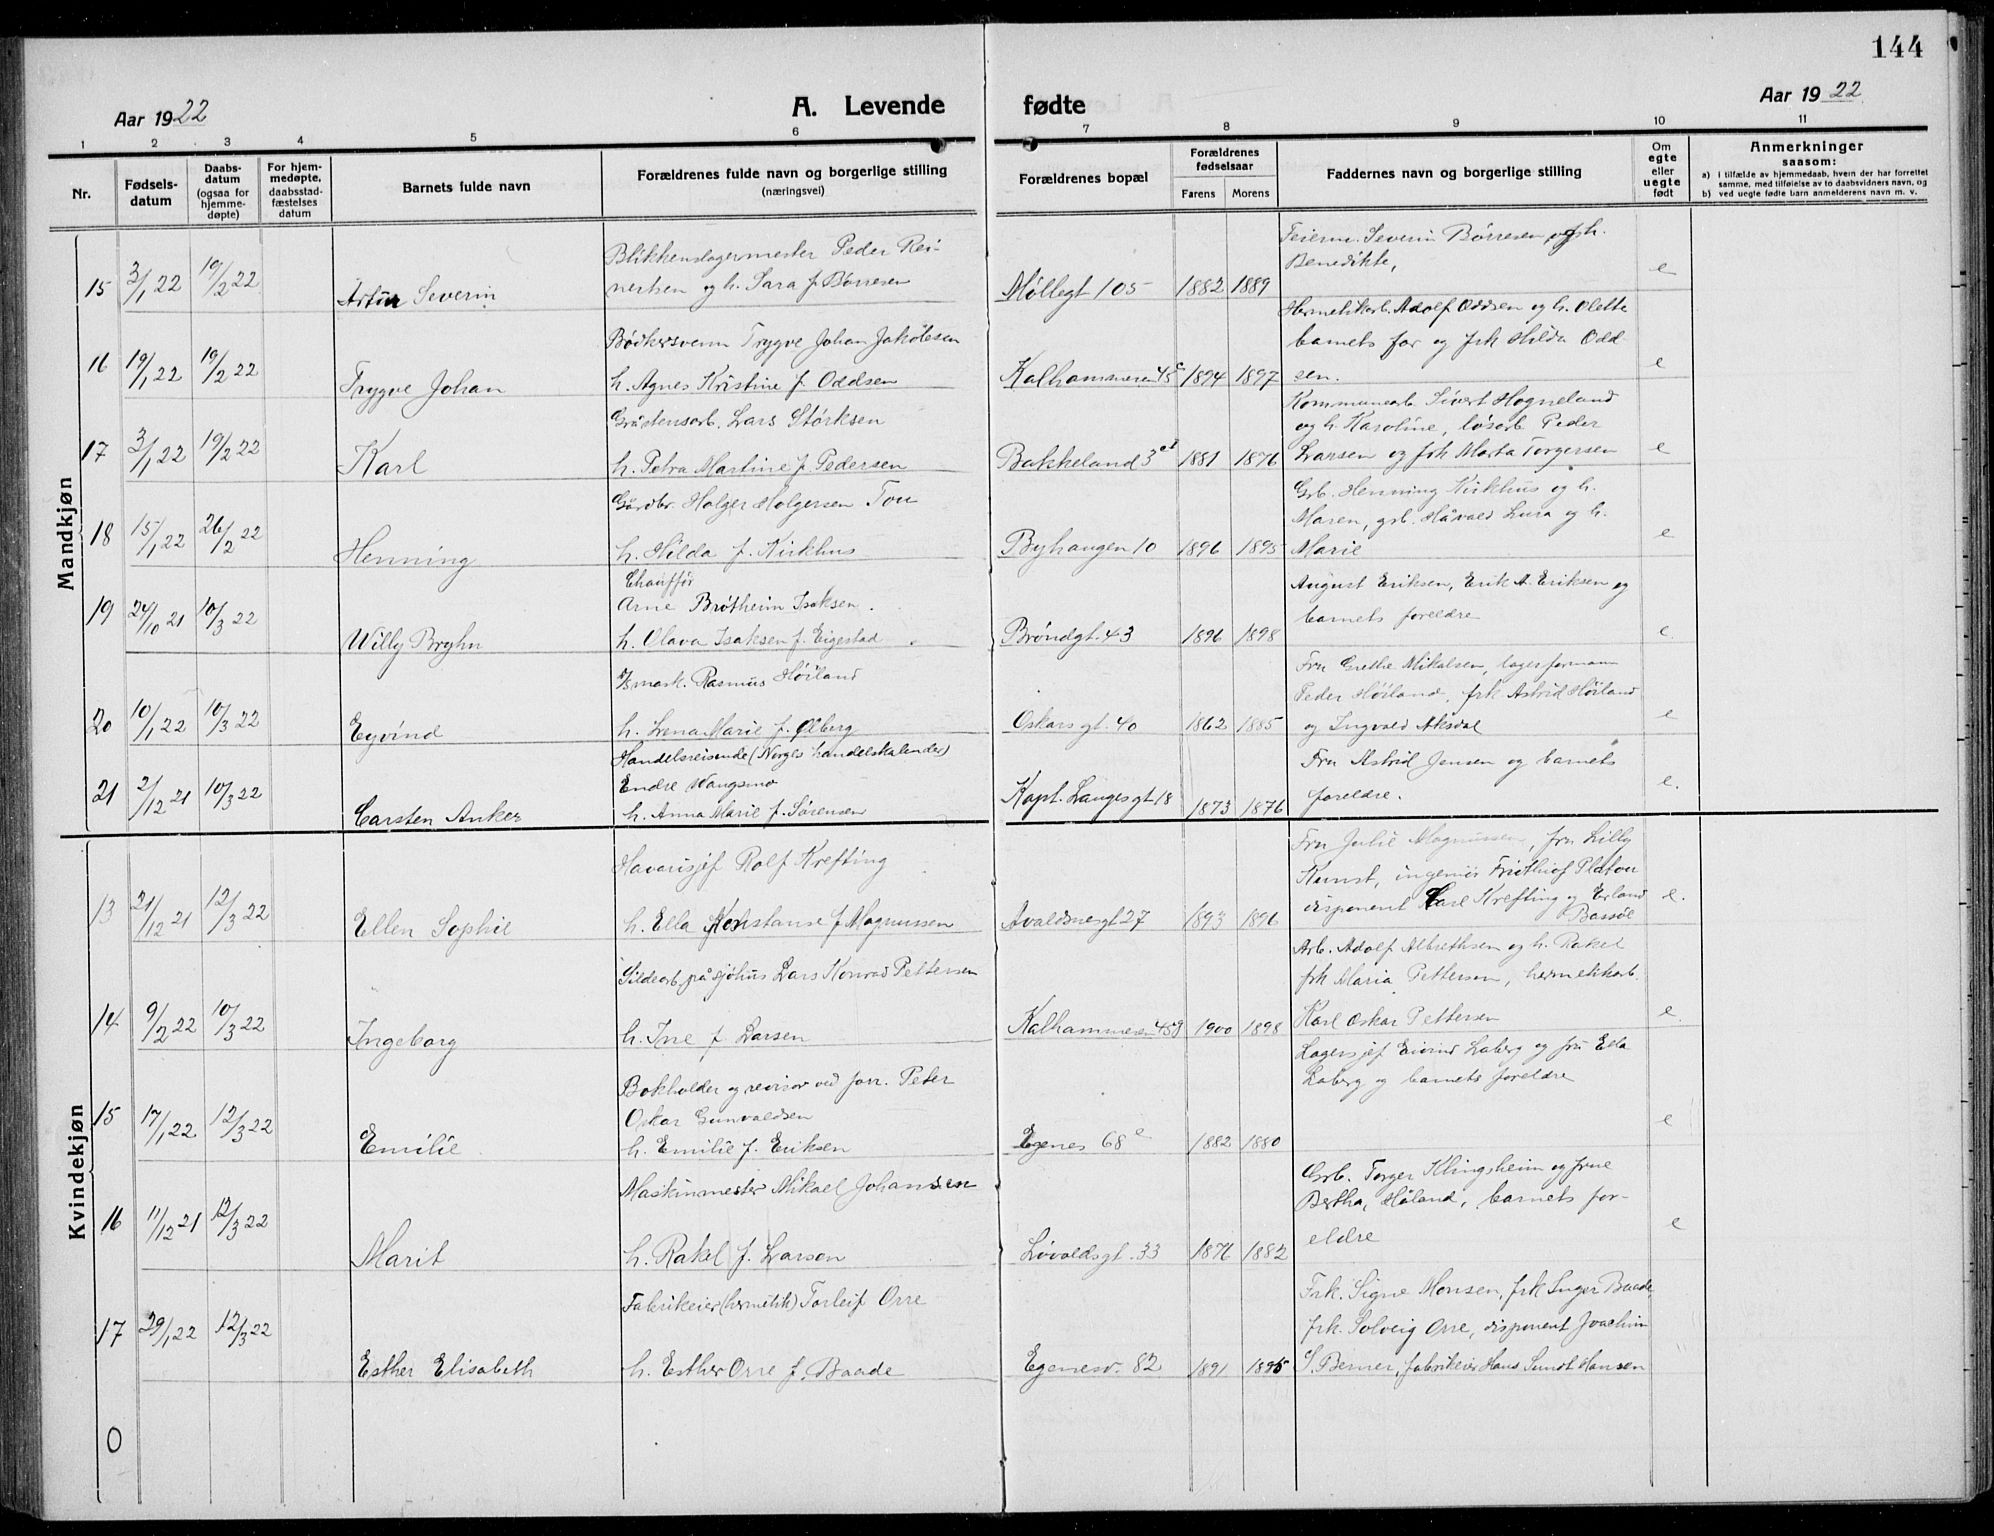 144
Aar 1922
A. Levende fødte
Aar 1922
1 2 3 4 5 6 7 8 9 10 11
Nr.
Fødsels-
datum
Daabs-
datum
(ogsaa for
hjemme-
døpte)
For hjem-
medøpte,
daabsstad-
fæstelses
datum
Barnets fulde navn
Forældrenes fulde navn og borgerlige stilling
(næringsvei)
Forældrenes bopæl
Forældrenes
fødselsaar
Farens Morens
Faddernes navn og borgerlige stilling
Om
egte
eller
uegte
født
Anmerkninger
saasom:
a) i tilfælde av hjemmedaab, hvem der har forrettet
samme, med tilføielse av to daabsvidners navn, og
b) ved uegte fødte barn anmelderens navn m. v.
Mandkjøn
15 3/1 22 19/2 22 Artur Severin
Blikkenslagermester Peder Rei-
nertsen og h. Sara f. Børresen
Møllegt 105 1882 1889
Feierm. Severin Børresen og h.
Benedikte, e
16 19/1 22 19/2 22 Trygve Johan
Bødkersvenn Trygve Johan Jakobsen
h. Agnes Kristine f. Oddsen
Kalhammeren 45c 1894 1897
Hermetikarb. Adolf Oddsen og h. Olette
barnets far og frk Hilda Odd-
sen. e
17 3/1 22 19/2 22 Karl
Gråstensarb. Lars Størksen
h. Petra Martine f. Pedersen
Bakkeland 3 1881 1876
Kommunearb Sivert Hogneland
og h Karoline, løsarb Peder
Larsen og frk Marta Torgersen e
18 15/1 22 26/2 22 Henning
Gårdbr. Holger Holgersen Tou
h. Hilda f. Kirkhus
Byhaugen 10 1896 1895
Grb. Henning Kirkhus og h.
Maren, grb. Håvald Lura og h.
Marie e
19 24/10 21 10/3 22 Willy Bryhn
Chauffør
Arne Brøtheim Isaksen.
h. Olava Isaksen f. Eigestad
Brøndgt. 43 1896 1898
August Eriksen, Erik A. Eriksen og
barnets foreldre e.
20 10/1 22 10/3 22 Eyvind
mask. Rasmus Høiland
h. Lena Marie f. Ølberg
Oskarsgt. 40 1862 1885
Fru Grethe Mikalsen, lagerformann
Peder Høiland, frk Astrid Høiland
og Ingvald Aksdal e
21 2/12 21 10/3 22 Carsten Anker
Handelsreisende (Norges handelskalender)
Endre Vangsmo
h. Anna Marie f. Sørensen
Kapt. Langesgt 18 1873 1876
Fru Astrid Jensen og barnets
foreldre. e.
Kvindekjøn
13 21/12 21 12/3 22 Ellen Sophie
Havarisjef Rolf Krefting
h. Ella Konstanse f Magnussen
Avaldsnesgt 27 1893 1896
Fru Julie Magnussen, fru Lilly
Kunst, ingeniør Fridthiof Platou
disponent Carl Krefting og Erland
Bassøe e.
14 9/2 22 10/3 22 Ingeborg
Sildearb. på sjøhus Lars Konrad Pettersen
h. Ine f Larsen
Kalhammeren 45g 1900 1898
Arb. Adolf Albrethsen og h. Rakel
frk Maria Pettersen, hermetikarb.
Karl Oskar Pettersen e.
15 17/1 22 12/3 22 Emilie
Bokholder og revisor ved forr. Peder
Oskar Gunvaldsen
h. Emilie f. Eriksen
Egenes 68e 1882 1880
Lagersjef Eivind Laberg og fru Ella
Laberg og barnets foreldre e
16 11/12 21 12/3 22 Marit
Maskinmester Mikael Johansen
h. Rakel f. Larsen
Løvoldsgt. 33 1876 1882
Grb. Torger Klingsheim og frue
Bertha, Høland, barnets for-
eldre e
17 29/1 22 12/3 22 Esther Elisabeth
Fabrikeier (hermetik) Torleif Orre
h. Esther Orre f. Baade
Egenesv. 82 1891 1895
Frk. Signe Monsen, frk Inger Baade,
frk. Solveig Orre, disponent Joachim
S. Berner, fabrikeier Hans Sundt Hansen
0